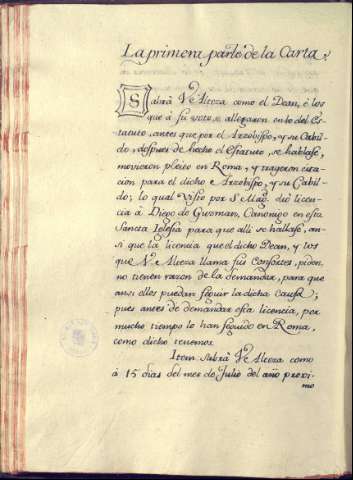 La primera parte de la Carta,
Sabrà Vᵃ Alteza como el Dean, ò los
que à su voto se allegaron en lo del Es-
tatuto, antes que por el Arzobispo, y su Cabil-
do, despues de hecho el Estatuto, se hablase,
movieron pleito en Roma, y trageron cita-
cion para el dicho Arzobispo, y su Cabil-
do; lo qual visto por S. Magᵈ. diò licen-
cia à Diego de Guzman, Canonigo en esta
Santa Iglesia para que allì se hallase, an-
si que la licencia que el dicho Dean, y los
que Vᵃ Alteza llama sus Consortes, piden,
no tienen razon de la demandar, para que
ansi ellos puedan seguir la dicha Causa;
pues antes de demandar esta licencia, por
mucho tiempo lo han seguido en Roma,
como dicho tenemos.
Item sabrà Vᵃ Alteza como
à 15 dias del mes de Julio del año proxi-
mo